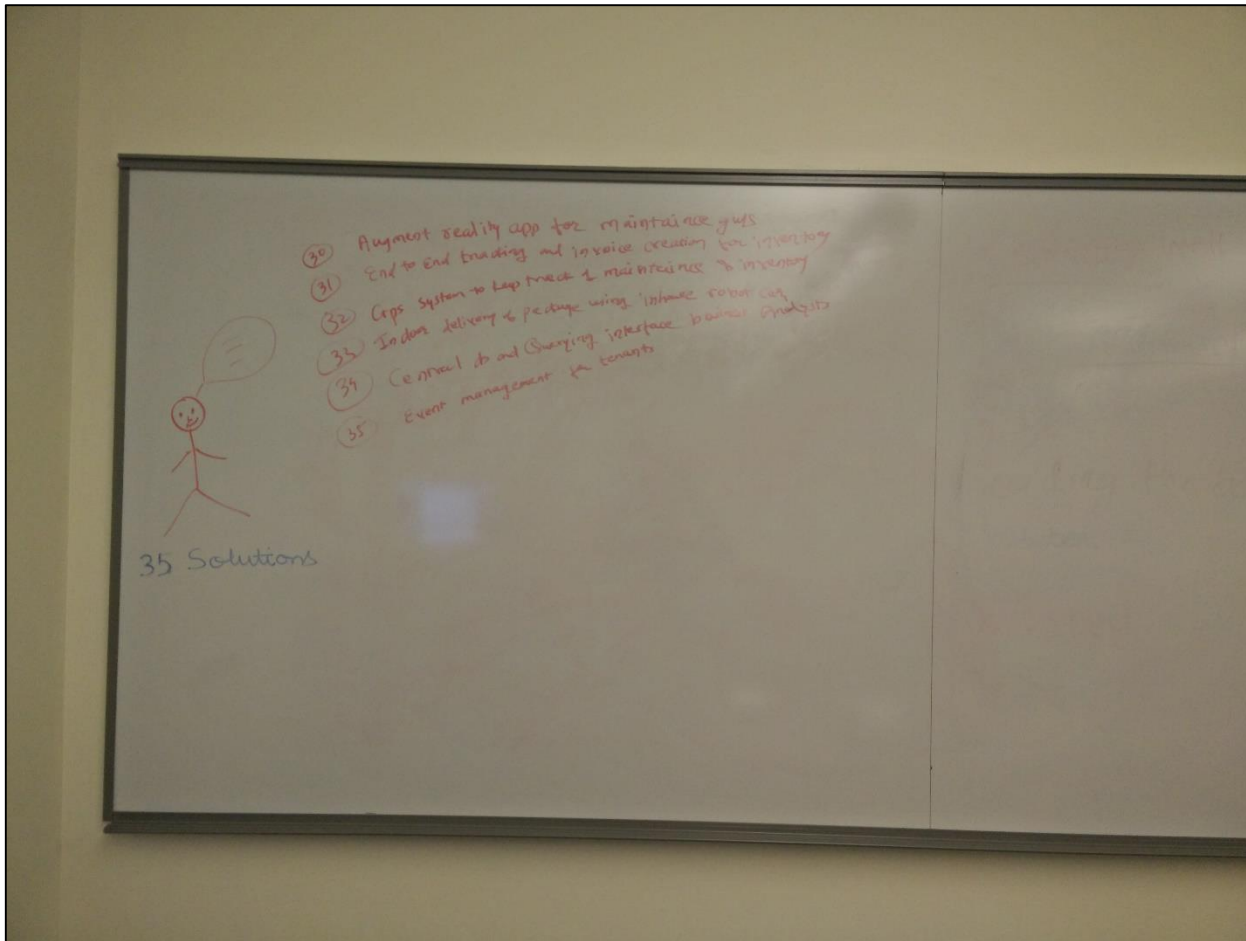 30 Augment reality app for maintaince guys
31 End to End tracking and invoice creation for inventory
32 system to keep track of maintaince & inventory
33 Indoor delivery of package using inhouse robot car
34 Central db and Querying interface business
35 Event management for tenants
35 Solutions